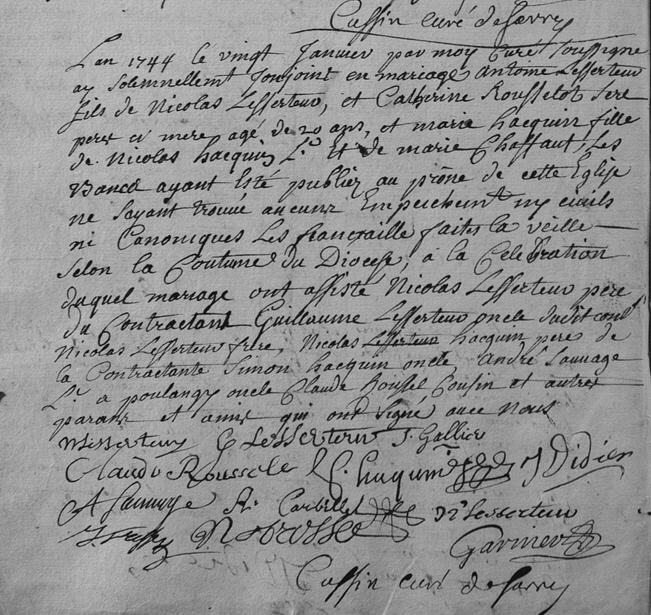 Cassin curé de Sarrey
L'an 1744 le vingt Janvier par moy Curé soussigne
ay solemnellemt Conjoint en mariage Antoine Lesserteur
fils de Nicolas Lesserteur, et Catherine Rousselot sere
perre et mere agé de 20 ans, et marie hacquin fille
de Nicolas hacquin Lr. Et de marie Chaffaut, Les
Bancs ayant Esté publiez au prône de cette Eglise
ne sayant trouué aucuns Empeschemt ny ciuils
ni Canoniques Les fiançaille faites la veille
selon la Coutume du Diocese, à la Celebration
duquel mariage ont assisté Nicolas Lesserteur pere
du Contractant Guillaume Lesserteur oncle dudit cont
Nicolas Lesserteur frere, Nicolas Lesserteur hacquin pere de
la Contractante Simon hacquin oncle André Sauuage
Lr a poulangy oncle Claude Roussel Cousin et autres
parans et amis qui ont signé auec nous
Lesserteur J. Gallier
Claude Roussele huguni J Didier
A Sauvage Lesserteur
N Brosse
Garnier
Cassin curé de Sarrey